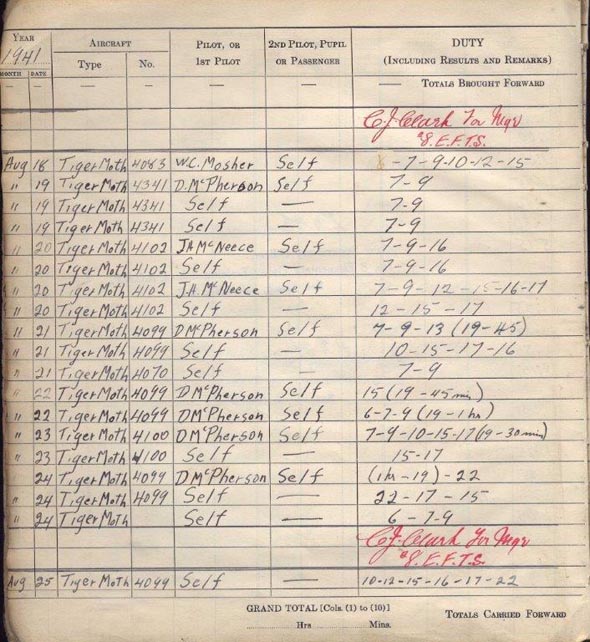 YEAR AIRCRAFT PILOT, OR 2ND PILOT, PUPIL DUTY
1941 Type No. 1ST PILOT OR PASSENGER (INCLUDING RESULTS AND REMARKS)
MONTH DATE
— — — — — — — TOTALS BROUGHT FORWARD
C.J. Clark For Mgr
#8. E.F.T.S.
Aug 18 Tiger Moth 4083 W.C. Mosher Self -7-9-10-12-15
" 19 Tiger Moth 4341 D. McPherson Self 7-9
" 19 Tiger Moth 4341 Self — 7-9
" 19 Tiger Moth 4341 Self — 7-9
" 20 Tiger Moth 4102 J.A. McNeece Self 7-9-16
" 20 Tiger Moth 4102 Self — 7-9-16
" 20 Tiger Moth 4102 J.A. McNeece Self 7-9-12-15-16-17
" 20 Tiger Moth 4102 Self — 12-15-17
" 21 Tiger Moth 4099 D McPherson Self 7-9-13 (19-45)
" 21 Tiger Moth 4099 Self — 10-15-17-16
" 21 Tiger Moth 4070 Self — 7-9
" 22 Tiger Moth 4099 D McPherson Self 15 (19-45 min)
" 22 Tiger Moth 4099 D McPherson Self 6-7-9 (19-1 hr)
" 23 Tiger Moth 4100 D McPherson Self 7-9-10-15-17 (19-30 min)
" 23 Tiger Moth 4100 Self — 15-17
24 Tiger Moth 4099 D McPherson Self (1 hr-19)-22
" 24 Tiger Moth 4099 Self — 22-17-15
" 24 Tiger Moth Self — 6-7-9
C.J. Clark For Mgr
#8. E.F.T.S.
Aug 25 Tiger Moth 4099 Self — 10-12-15-16-17-22
GRAND TOTAL [Cols. (1) to (10)]
TOTALS CARRIED FORWARD
Hrs Mins.